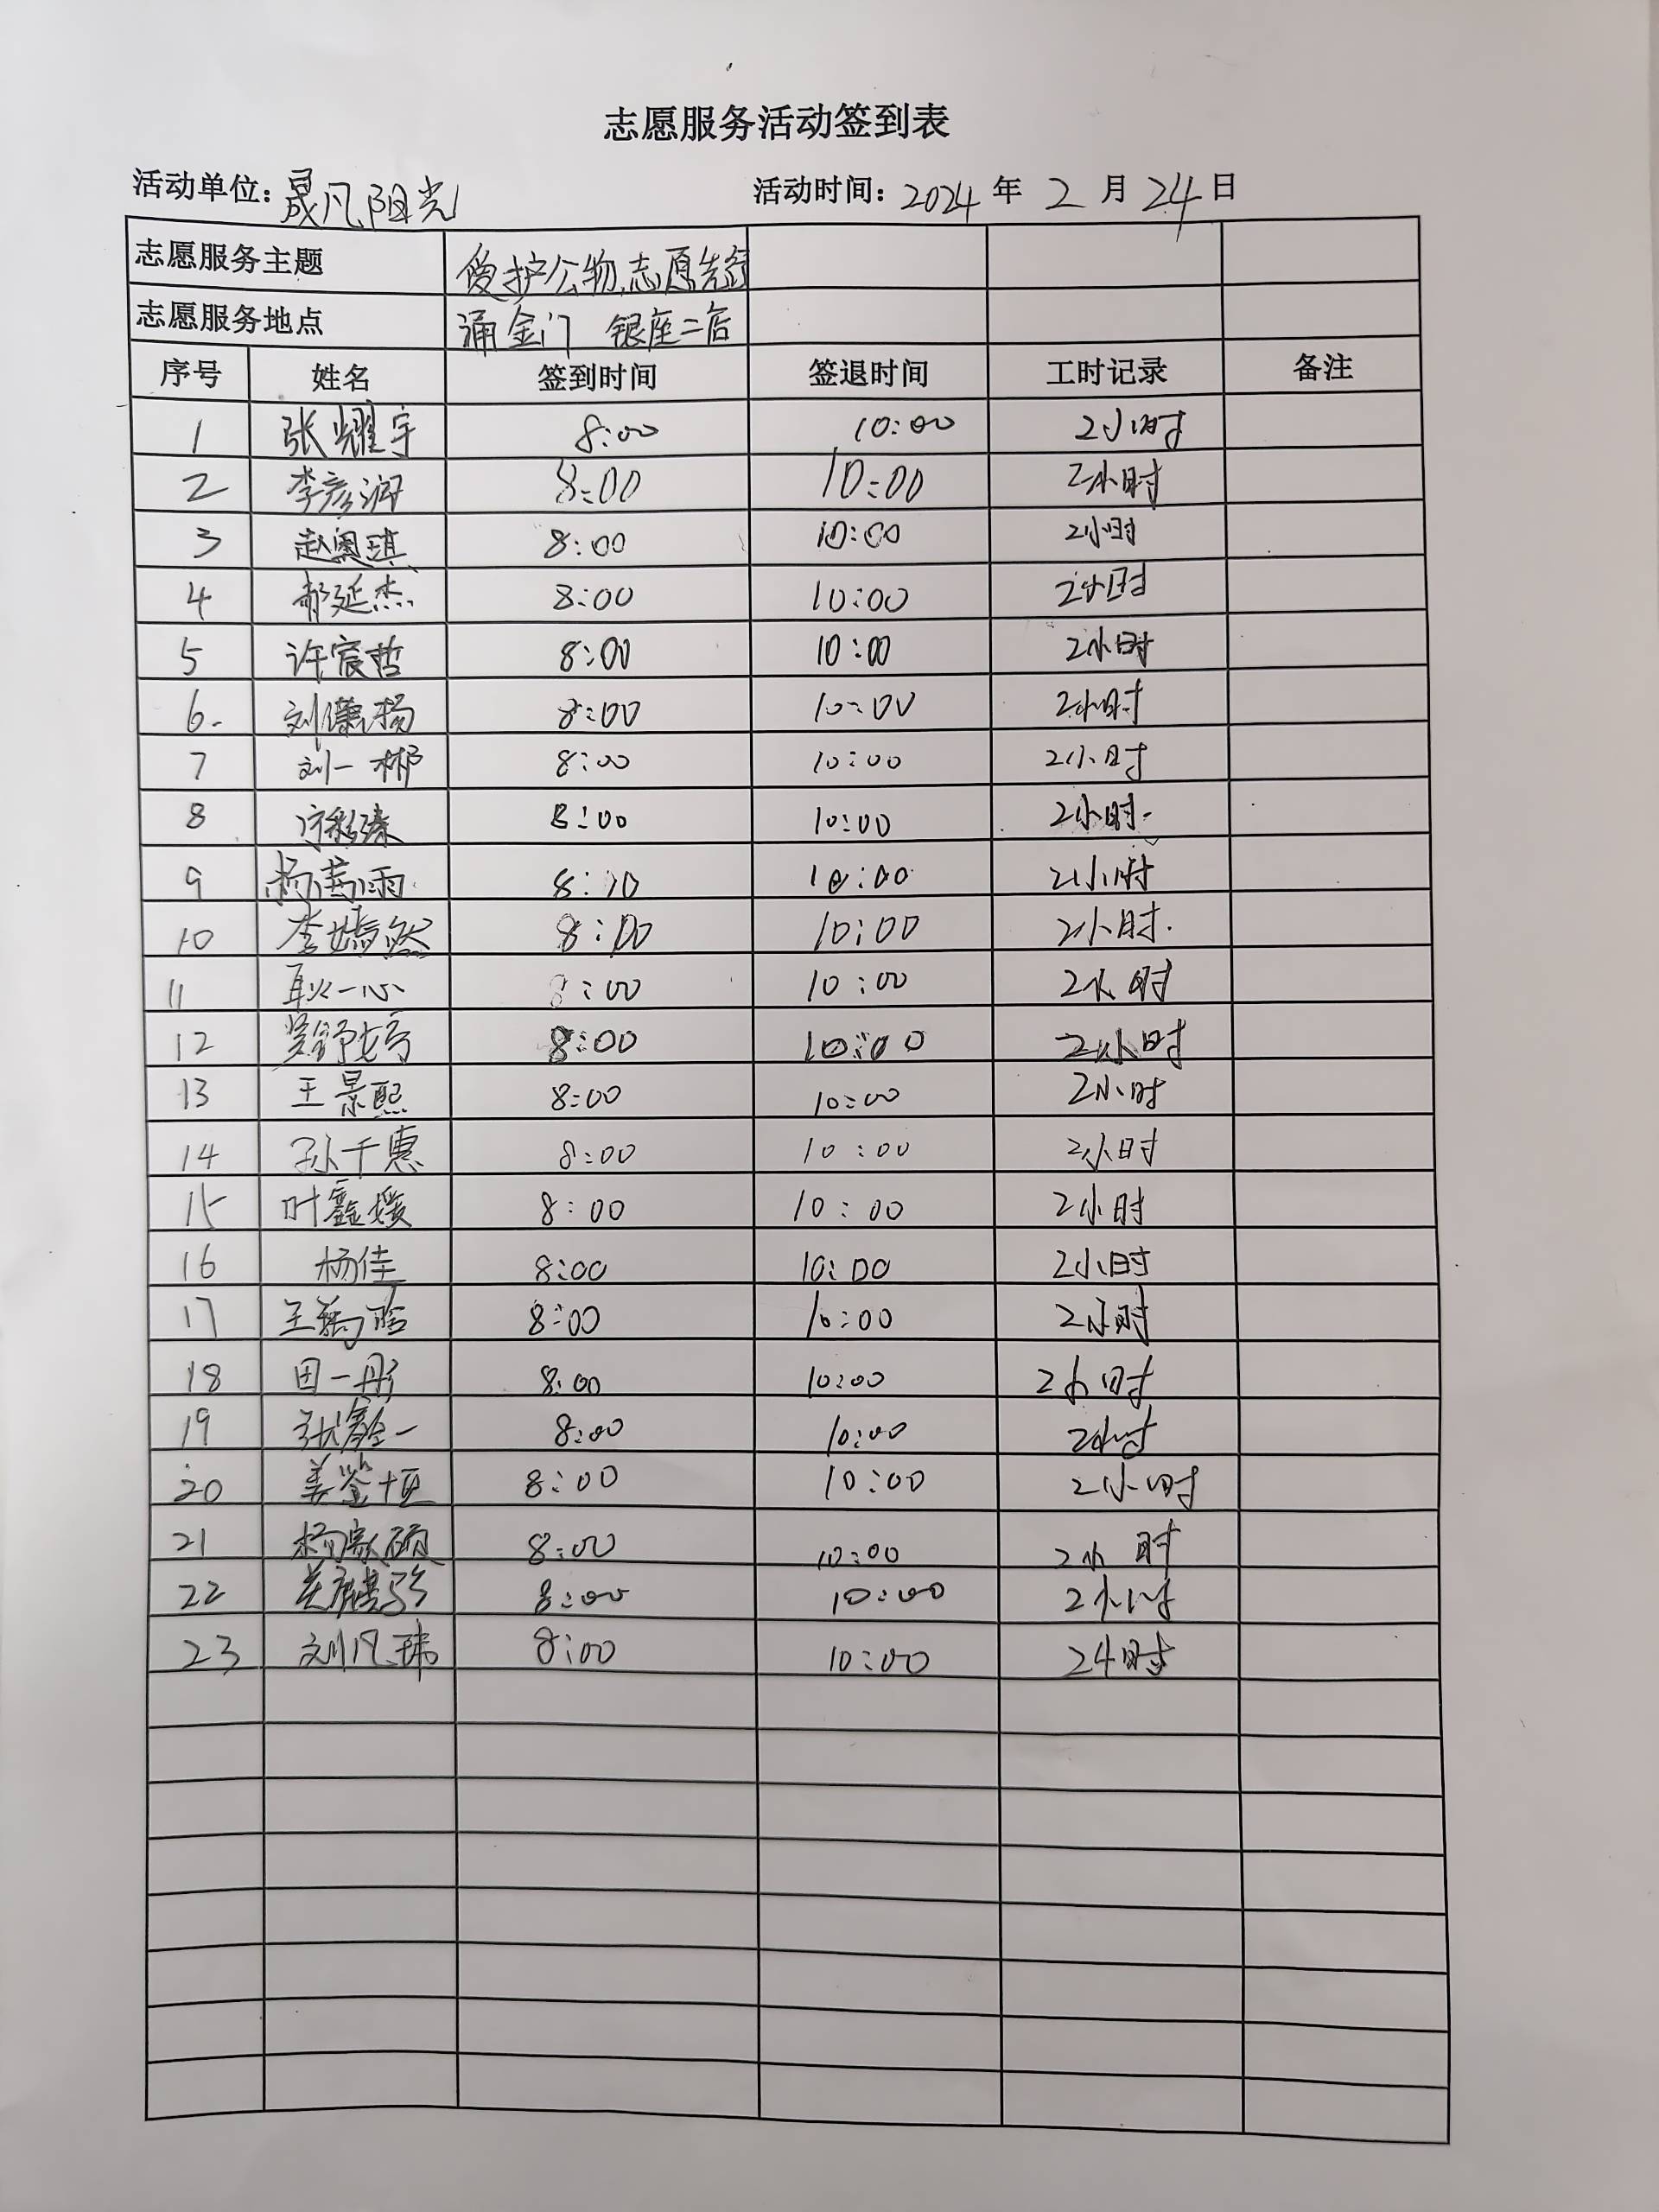 志愿服务活动签到表
活动单位：晟凡阳光 活动时间：2024年2月24日
志愿服务主题 爱护公物志愿先行
志愿服务地点 涌金门 银座二店
序号 姓名 签到时间 签退时间 工时记录 备注
1 张耀宇 8:00 10:00 2小时
2 李彦润 8:00 10:00 2小时
3 赵奥琪 8:00 10:00 2小时
4 郝延杰 8:00 10:00 2小时
5 许宸哲 8:00 10:00 2小时
6. 刘儒杨 8:00 10:00 2小时
7 刘一彬 8:00 10:00 2小时
8 8:00 10:00 2小时.
9 杨茜雨 8:10 10:00 2小时
10 李嫣然 8:00 10:00 2小时.
11 耿一心 8:00 10:00 2小时
12 8:00 10:00 2小时
13 王景熙 8:00 10:00 2小时
14 孙千惠 8:00 10:00 2小时
15 叶鑫媛 8:00 10:00 2小时
16 杨佳 8:00 10:00 2小时
17 8:00 10:00 2小时
18 田一彤 8:00 10:00 2小时
19 张鑫一 8:00 10:00 2小时
20 姜鉴恒 8:00 10:00 2小时
21 8:00 10:00 2小时
22 8:00 10:00 2小时
23 刘凡玮 8:00 10:00 2小时